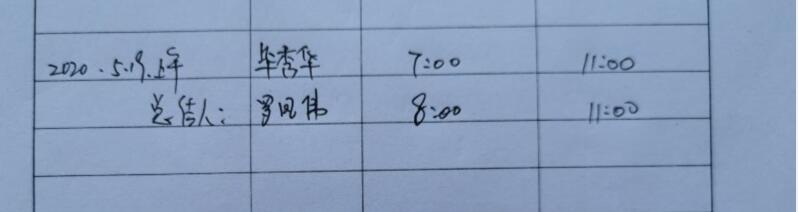 2020.5.19.上午 毕秀华 7:00 11:00
人: 罗 伟 8:00 11:00